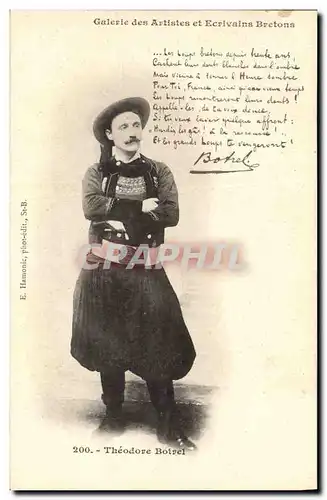 Galerie des Artistes et Ecrivains Bretons
... Les Loups bretons depuis trente ans
Cachent leurs dents blanches dans l'ombre
Mais vienne à sonner l'Heure sombre
Pour Toi, France, ainsi qu'au vieux temps
Les Loups remontreront leurs dents !
Appelle-les, de ta voix douce,
Si tu veux laver quelque affront :
"Hardi les gâs ! à la rescousse !"
Et les grands Loups te vengeront !
Botrel
E. Hamonic, phot-édit., St-B.
CPARAMA
200. - Théodore Botrel